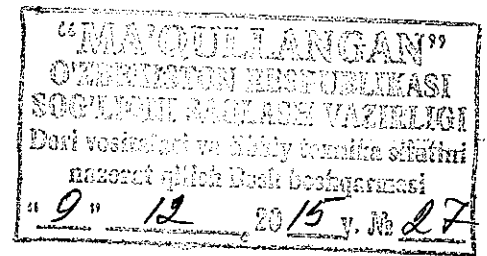 “MA’QULLANGAN”
O‘ZBEKISTON RESPUBLIKASI
SOG‘LIQNI SAQLASH VAZIRLIGI
Dori vositalari va tibbiy texnika sifatini
nazorat qilish Bosh boshqarmasi
“ 9 ” 12 2015 y. № 27